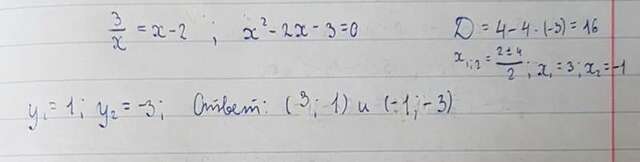 3/x = x - 2 ; x² - 2x - 3 = 0
D = 4 - 4 · (-3) = 16
x₁,₂ = (2 ± 4)/2 ; x₁ = 3 ; x₂ = -1
y₁ = 1 ; y₂ = -3 ; Ответ: (3 ; 1) и (-1 ; -3)